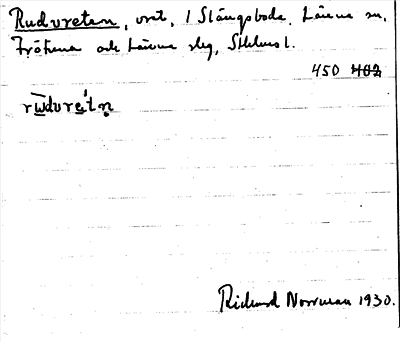 Rudvreten, vret, 1 Slängsboda, Länna sn,
Frötuna och Länna slg, Sthlms l.
450 402
rudvretn
Rickard Norrman 1930.